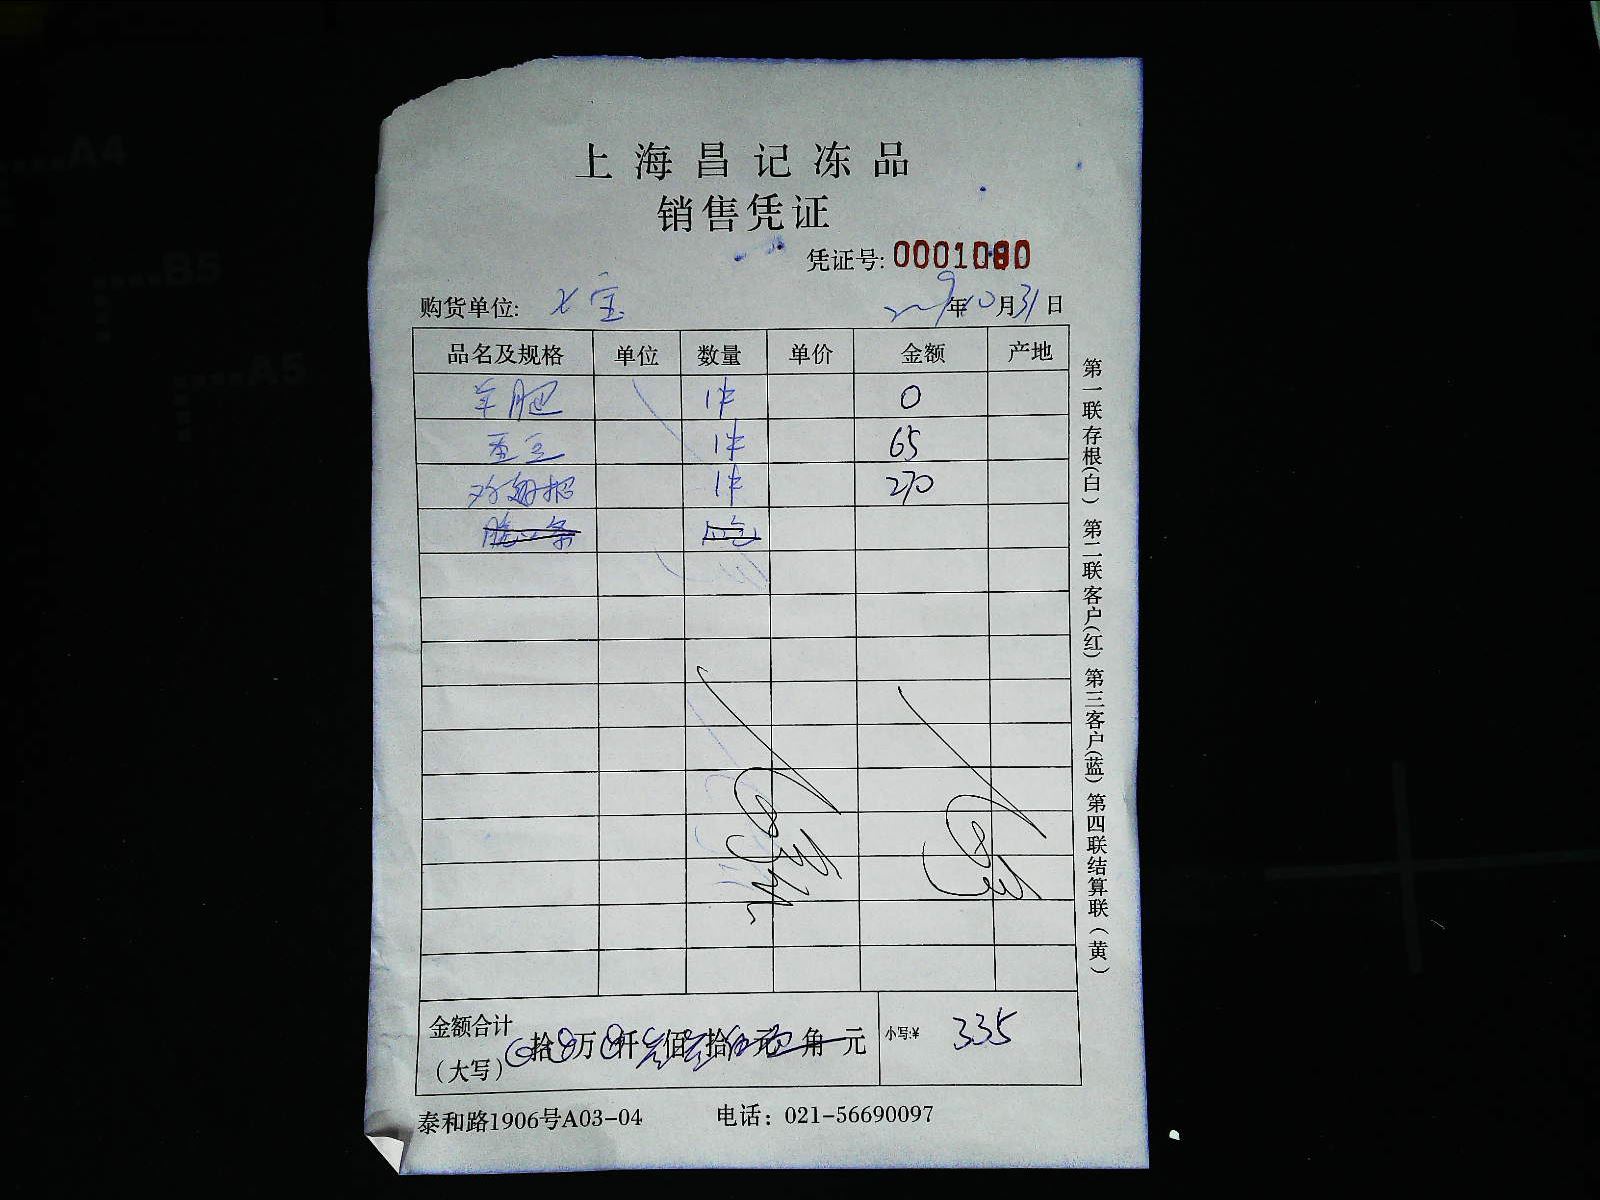 上海昌记冻品
销售凭证
凭证号: 0001080
购货单位: 七宝 2019年10月31日
品名及规格 单位 数量 单价 金额 产地
羊肥 1件 0
1件 65
鸡翅根 1件 270
金额合计
(大写) 拾 万 仟 佰 拾 元 角 元 小写:¥ 335
泰和路1906号A03-04 电话: 021-56690097
第一联存根(白) 第二联客户(红) 第三客户(蓝) 第四联结算联(黄)
A4
B5
A5